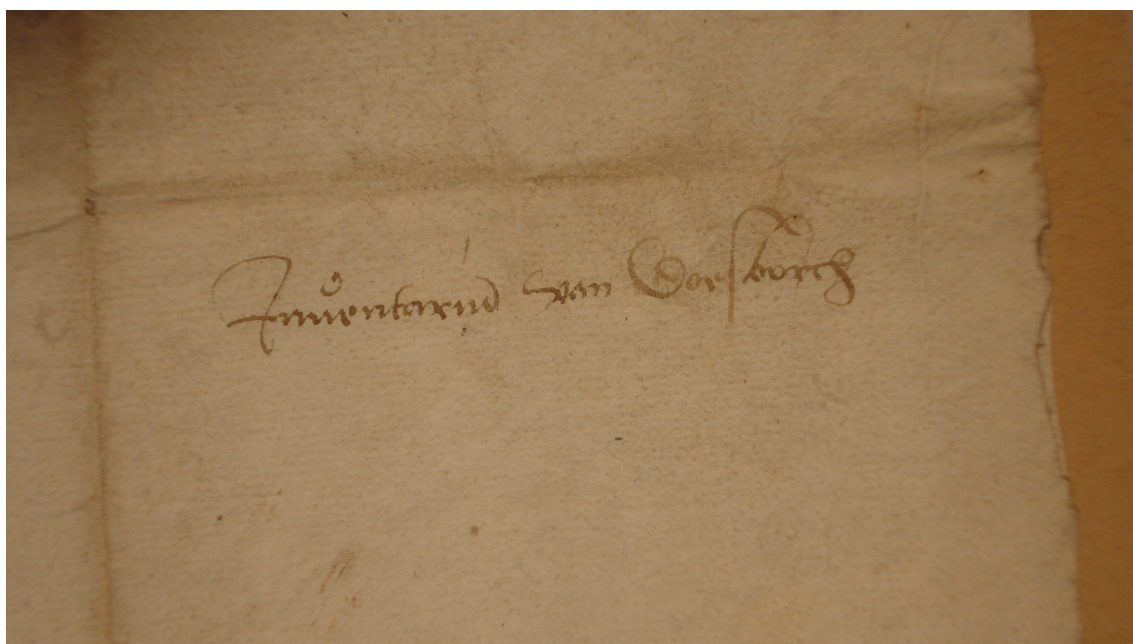 Inuentariu van Doesborch